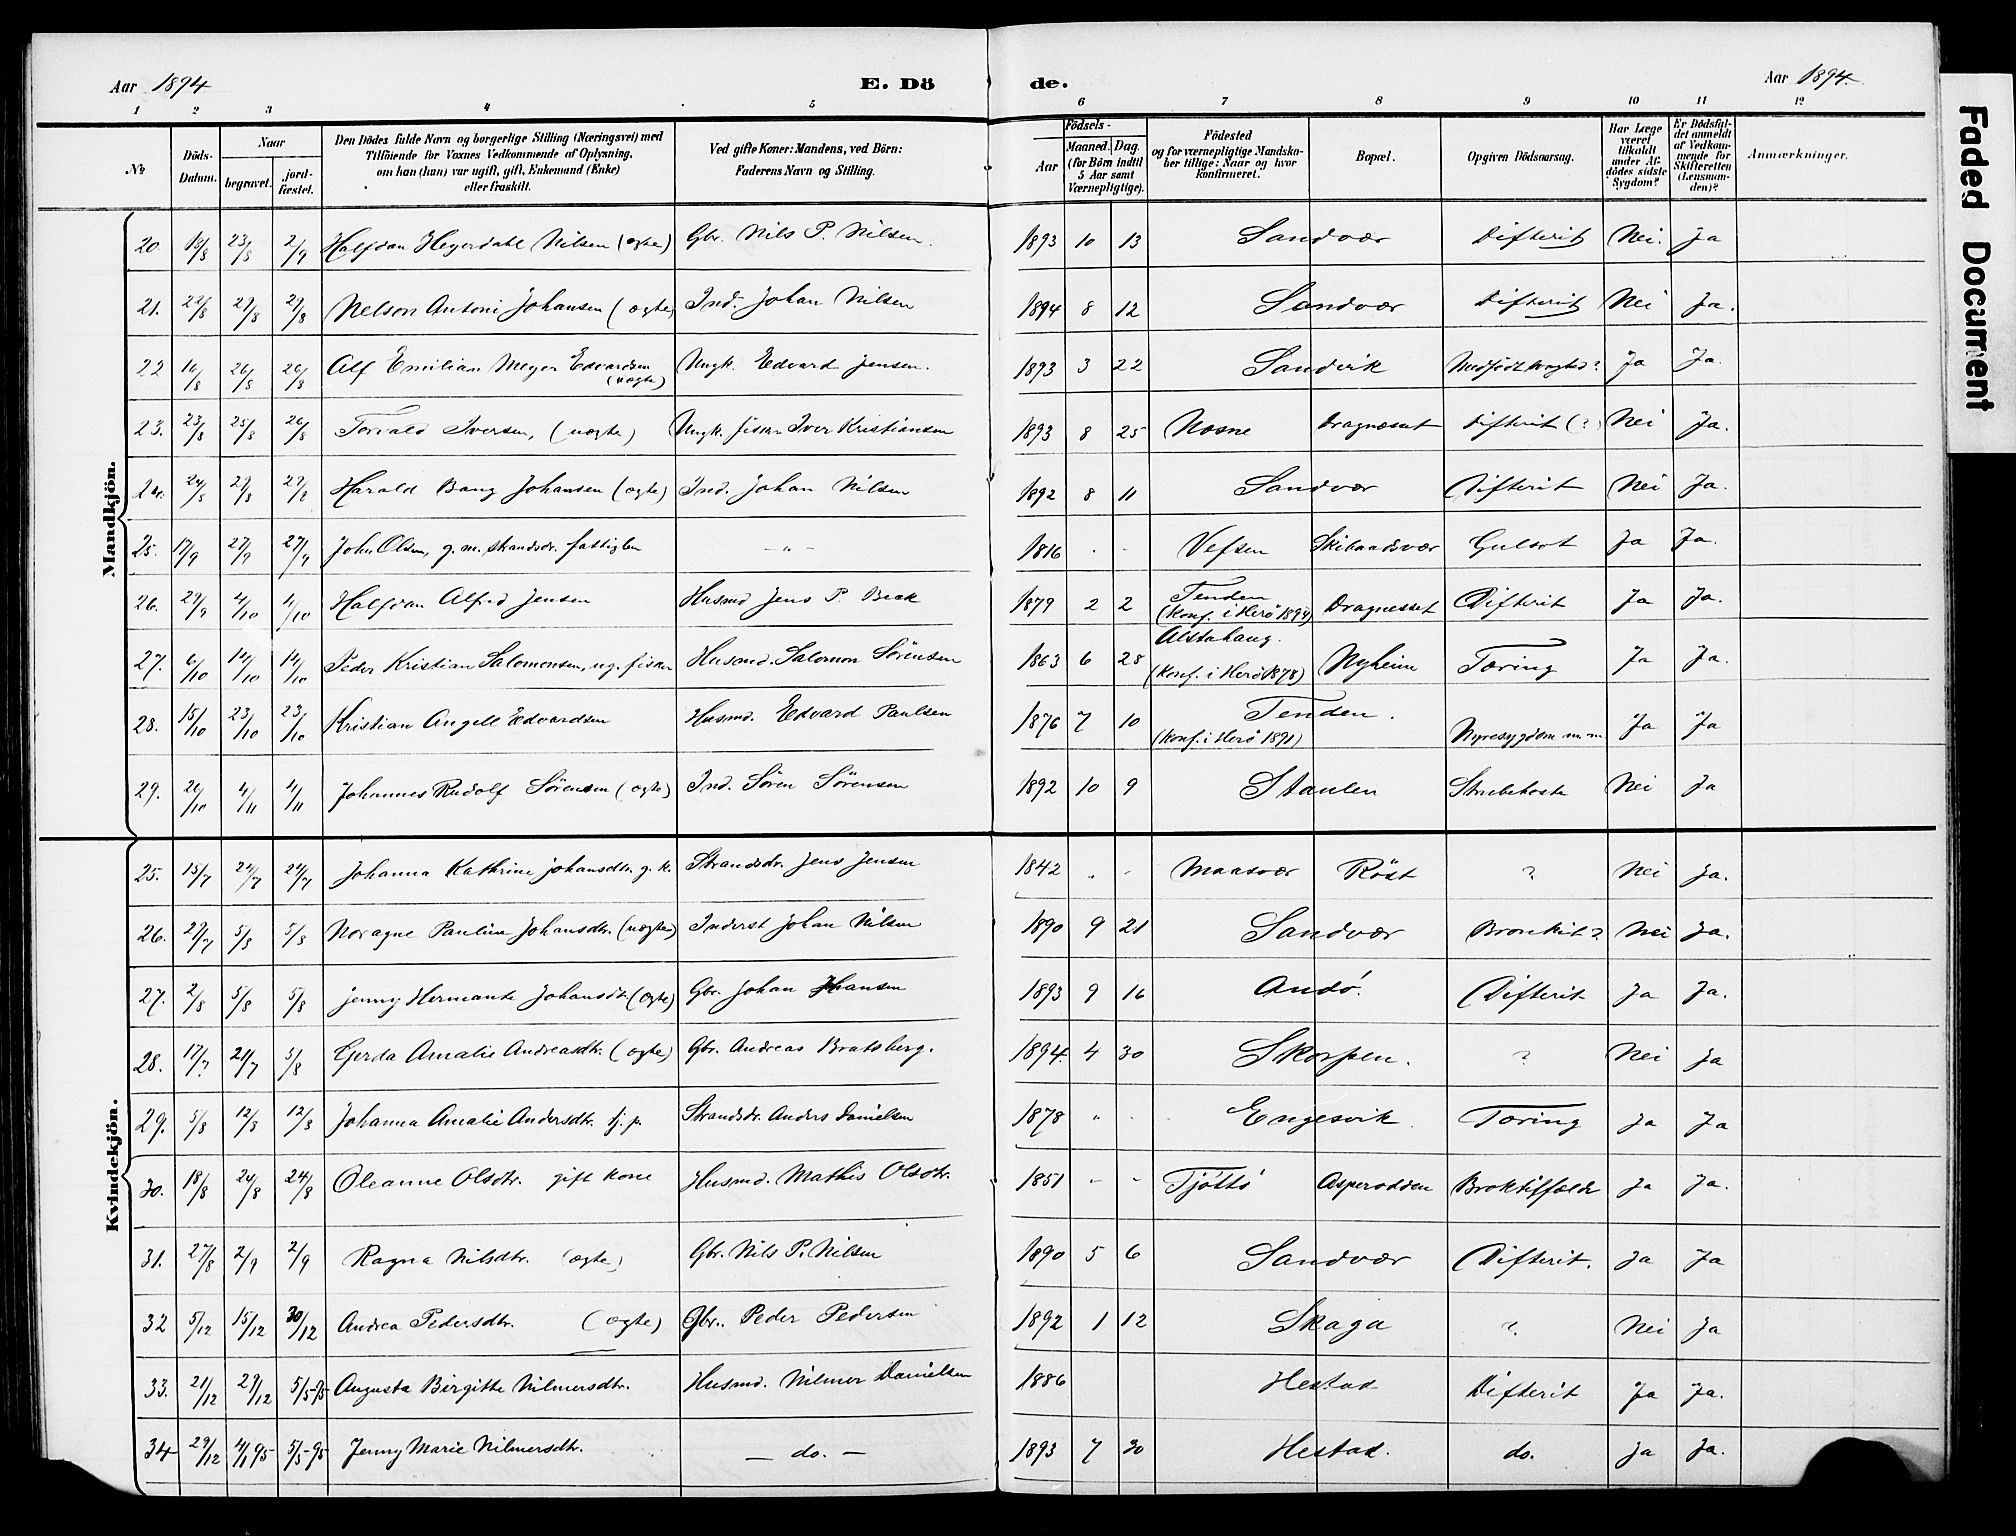 Aar 1894
E. Dö
de.
Aar 1894.
1 2 3 4 5 6 7 8 9 10 11 12
No
Döds-Datum.
Naar
begravet.
jord-fæstet.
Den Dödes fulde Navn og borgerlige Stilling (Næringsvei) med
Tilföiende for Voxnes Vedkommende af Oplysning,
om han (hun) var ugift, gift, Enkemand (Enke)
eller fraskilt.
Ved gifte Koner: Mandens, ved Börn:
Faderens Navn og Stilling.
Födsels-
Aar
Maaned. Dag.
(for Börn indtil
5 Aar samt
Værnepligtige).
Födested
og for værnepligtige Mandska-
ber tillige: Naar og hvor
konfirmeret.
Bopæl.
Opgiven Dödsaarsag.
Har Læge
været
tilkaldt
under Af-
dödes sidste
Sygdom?
Er Dödsfal-
det anmeldt
af Vedkom-
mende for
Skifteretten
(Lensman-
den)?
Anmærkninger.
Mandkjön.
20 18/8 23/8 2/9 Halfdan Hegerdahl Nilsen (ægte) Gbr. Nils P. Nilsen. 1893 10 13 Sandvær Difterit Nei. Ja
21. 22/8 29/8 29/8 Nelson Antoni Johansen (ægte) Ind. Johan Nilsen 1894 8 12 Sandvær Difterit Nei Ja.
22 16/8 26/8 26/8 Alf Emilian Meyer Edvardsen (uægte) Ungk. Edvard Jensen. 1893 3 22 Sandvik Ja Ja.
23. 23/8 25/8 26/8 Torvald Iversen, (uægte) Ungk. fisker Iver Kristiansen 1893 8 25 Nesne Dragnesset Difterit (?) Nei Ja.
24. 24/8 29/8 29/8 Harald Bang Johansen (ægte) Ind. Johan Nilsen 1892 8 11 Sandvær Difterit Nei Ja.
25. 17/9 27/9 27/9 John Olsen, g. m. strandsdr. fattiglem - " - 1816 . - Vefsen Skibaadsvær Gulsot Ja Ja.
26. 29/9 4/10 4/10 Halfdan Alfred Jensen Husmd Jens P Beck 1879 2 2 Tenden (Konf. i Herö 1894) Dragnesset Difterit Ja Ja.
27. 6/10 14/10 14/10 Peder Kristian Salomonsen, ug. fisker Husmd. Salomon Sörensen 1863 6 28 Alstahaug. (Konf. i Herö 1878) Nyheim Tæring Ja Ja.
28. 15/10 23/10 23/10 Kristian Angell Edvardsen Husmd. Edvard Paulsen 1876 7 10 Tenden. (Konf. i Herö 1891) Nyresygdom m. m Ja Ja
29. 20/10 4/11 4/11 Johannes Rudolf Sörensen (ægte) Ind. Sören Sörensen 1892 10 9 Staulen Strubehoste Nei Ja
Kvindekjön.
25. 15/7 24/7 24/7 Johanna Kathrine Johansdtr. g. k. Strandsdr. Jens Jensen 1842 . - Maasvær Röst ? Nei Ja.
26. 29/7 5/8 5/8 Noragne Pauline Johansdtr. (uægte) Inderst Johan Nilsen 1890 9 21 Sandvær Bronkit? Nei Ja.
27. 2/8 5/8 5/8 Jenny Hermante Johansdtr. (ægte) Gbr. Johan Hansen 1893 9 16 Andö. Difterit Ja Ja.
28. 17/7 21/7 5/8 Gerda Amalie Andreasdtr. (ægte) Gbr. Andreas Bratsberg. 1894. 4 30 Skorpen. ? Nei Ja
29. 5/8 12/8 12/8 Johanna Amalie Andersdtr. tj. p. Strandsdr. Anders Danielsen 1878 " . Engesvik Tæring Ja Ja
30. 18/8 24/8 24/8 Oleanne Olsdtr. gift kone Husmd. Mathis Olsdtr. 1851 - - Tjöttö Asperodden Broktilfælde Ja Ja.
31. 27/8 2/9 2/9 Ragna Nilsdtr. (ægte) Gbr. Nils P. Nilsen 1890 5 6 Sandvær Difterit. Ja Ja
32 5/12 15/12 30/12 Andrea Pedersdtr. (ægte) Gbr. Peder Pedersen 1892 1 12 Skaga ?. Nei Ja
33. 21/12 29/12 5/5-95 Augusta Birgitte Nilmersdtr. Husmd. Nilmer Danielsen 1886 Hestad Difterit Ja Ja.
34 29/12 4/1 95 5/5-95 Jenny Marie Nilmersdtr. — do. — 1893 7 30 Hestad. do. Ja Ja.
Faded Document